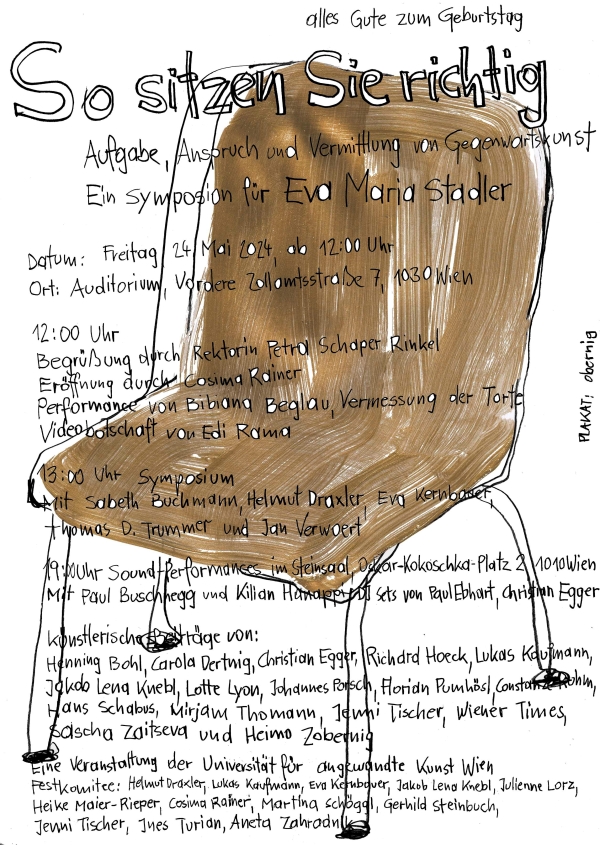 alles Gute zum Geburtstag
So sitzen Sie richtig
Aufgabe, Anspruch und Vermittlung von Gegenwartskunst
Ein Symposion für Eva Maria Stadler
Datum: Freitag 24. Mai 2024, ab 12:00 Uhr
Ort: Auditorium, Vordere Zollamtsstraße 7, 1030 Wien
12:00 Uhr
Begrüßung durch Rektorin Petra Schaper Rinkel
Eröffnung durch Cosima Rainer
Performance von Bibiana Beglau, Vermessung der Torte
Videobotschaft von Edi Rama
13:00 Uhr Symposium
Mit Sabeth Buchmann, Helmut Draxler, Eva Kernbauer,
Thomas D. Trummer und Jan Verwoert
19:00 Uhr Sound-Performances im Steinsaal, Oskar-Kokoschka-Platz 2, 1010 Wien
Mit Paul Buschnegg und Kilian Hanappi, DJ Sets von Paul Ebhart, Christian Egger
Künstlerische Beiträge von:
Henning Bohl, Carola Dertnig, Christian Egger, Richard Hoeck, Lukas Kaufmann,
Jakob Lena Knebl, Lotte Lyon, Johannes Porsch, Florian Pumhösl, Constanze Ruhm,
Hans Schabus, Mirjam Thomann, Jenni Tischer, Wiener Times,
Sascha Zaitseva und Heimo Zobernig
Eine Veranstaltung der Universität für angewandte Kunst Wien
Festkomitee: Helmut Draxler, Lukas Kaufmann, Eva Kernbauer, Jakob Lena Knebl, Julienne Lorz,
Heike Maier-Rieper, Cosima Rainer, Martina Schöggl, Gerhild Steinbuch,
Jenni Tischer, Ines Turian, Aneta Zahradnik
PLAKAT: obernig